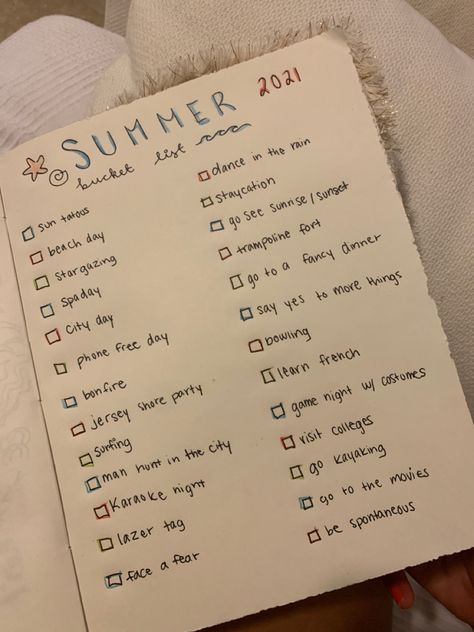 SUMMER 2021
bucket list
sun tatoos
beach day
stargazing
spa day
city day
phone free day
bonfire
jersey shore party
surfing
man hunt in the city
Karaoke night
lazer tag
face a fear
dance in the rain
staycation
go see sunrise/sunset
trampoline fort
go to a fancy dinner
say yes to more things
bowling
learn french
game night w/ costumes
visit colleges
go kayaking
go to the movies
be spontaneous